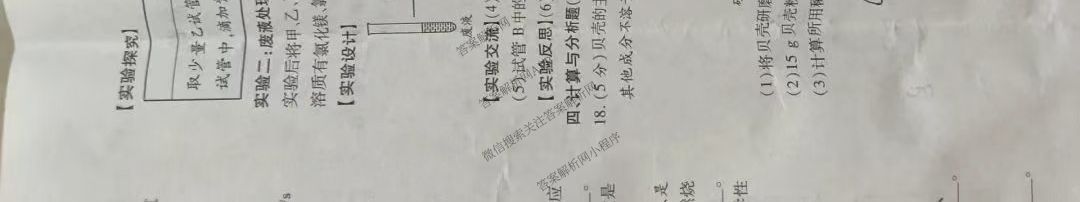 【实验探究】
取少量乙试管
试管中,滴加
实验二:废液处理
实验后将甲、乙、
溶质有氯化镁、
【实验设计】
废液
【实验交流】(4)
(5)试管 B 中的
【实验反思】(6)
四、计算与分析题(
18.(5 分)贝壳的主
其他成分不溶
(1)将贝壳研磨
(2)15 g 贝壳粉
(3)计算所用稀
应
。
是
是
燃烧
。
性
。
。
微信搜索关注答案解析网
答案解析网小程序